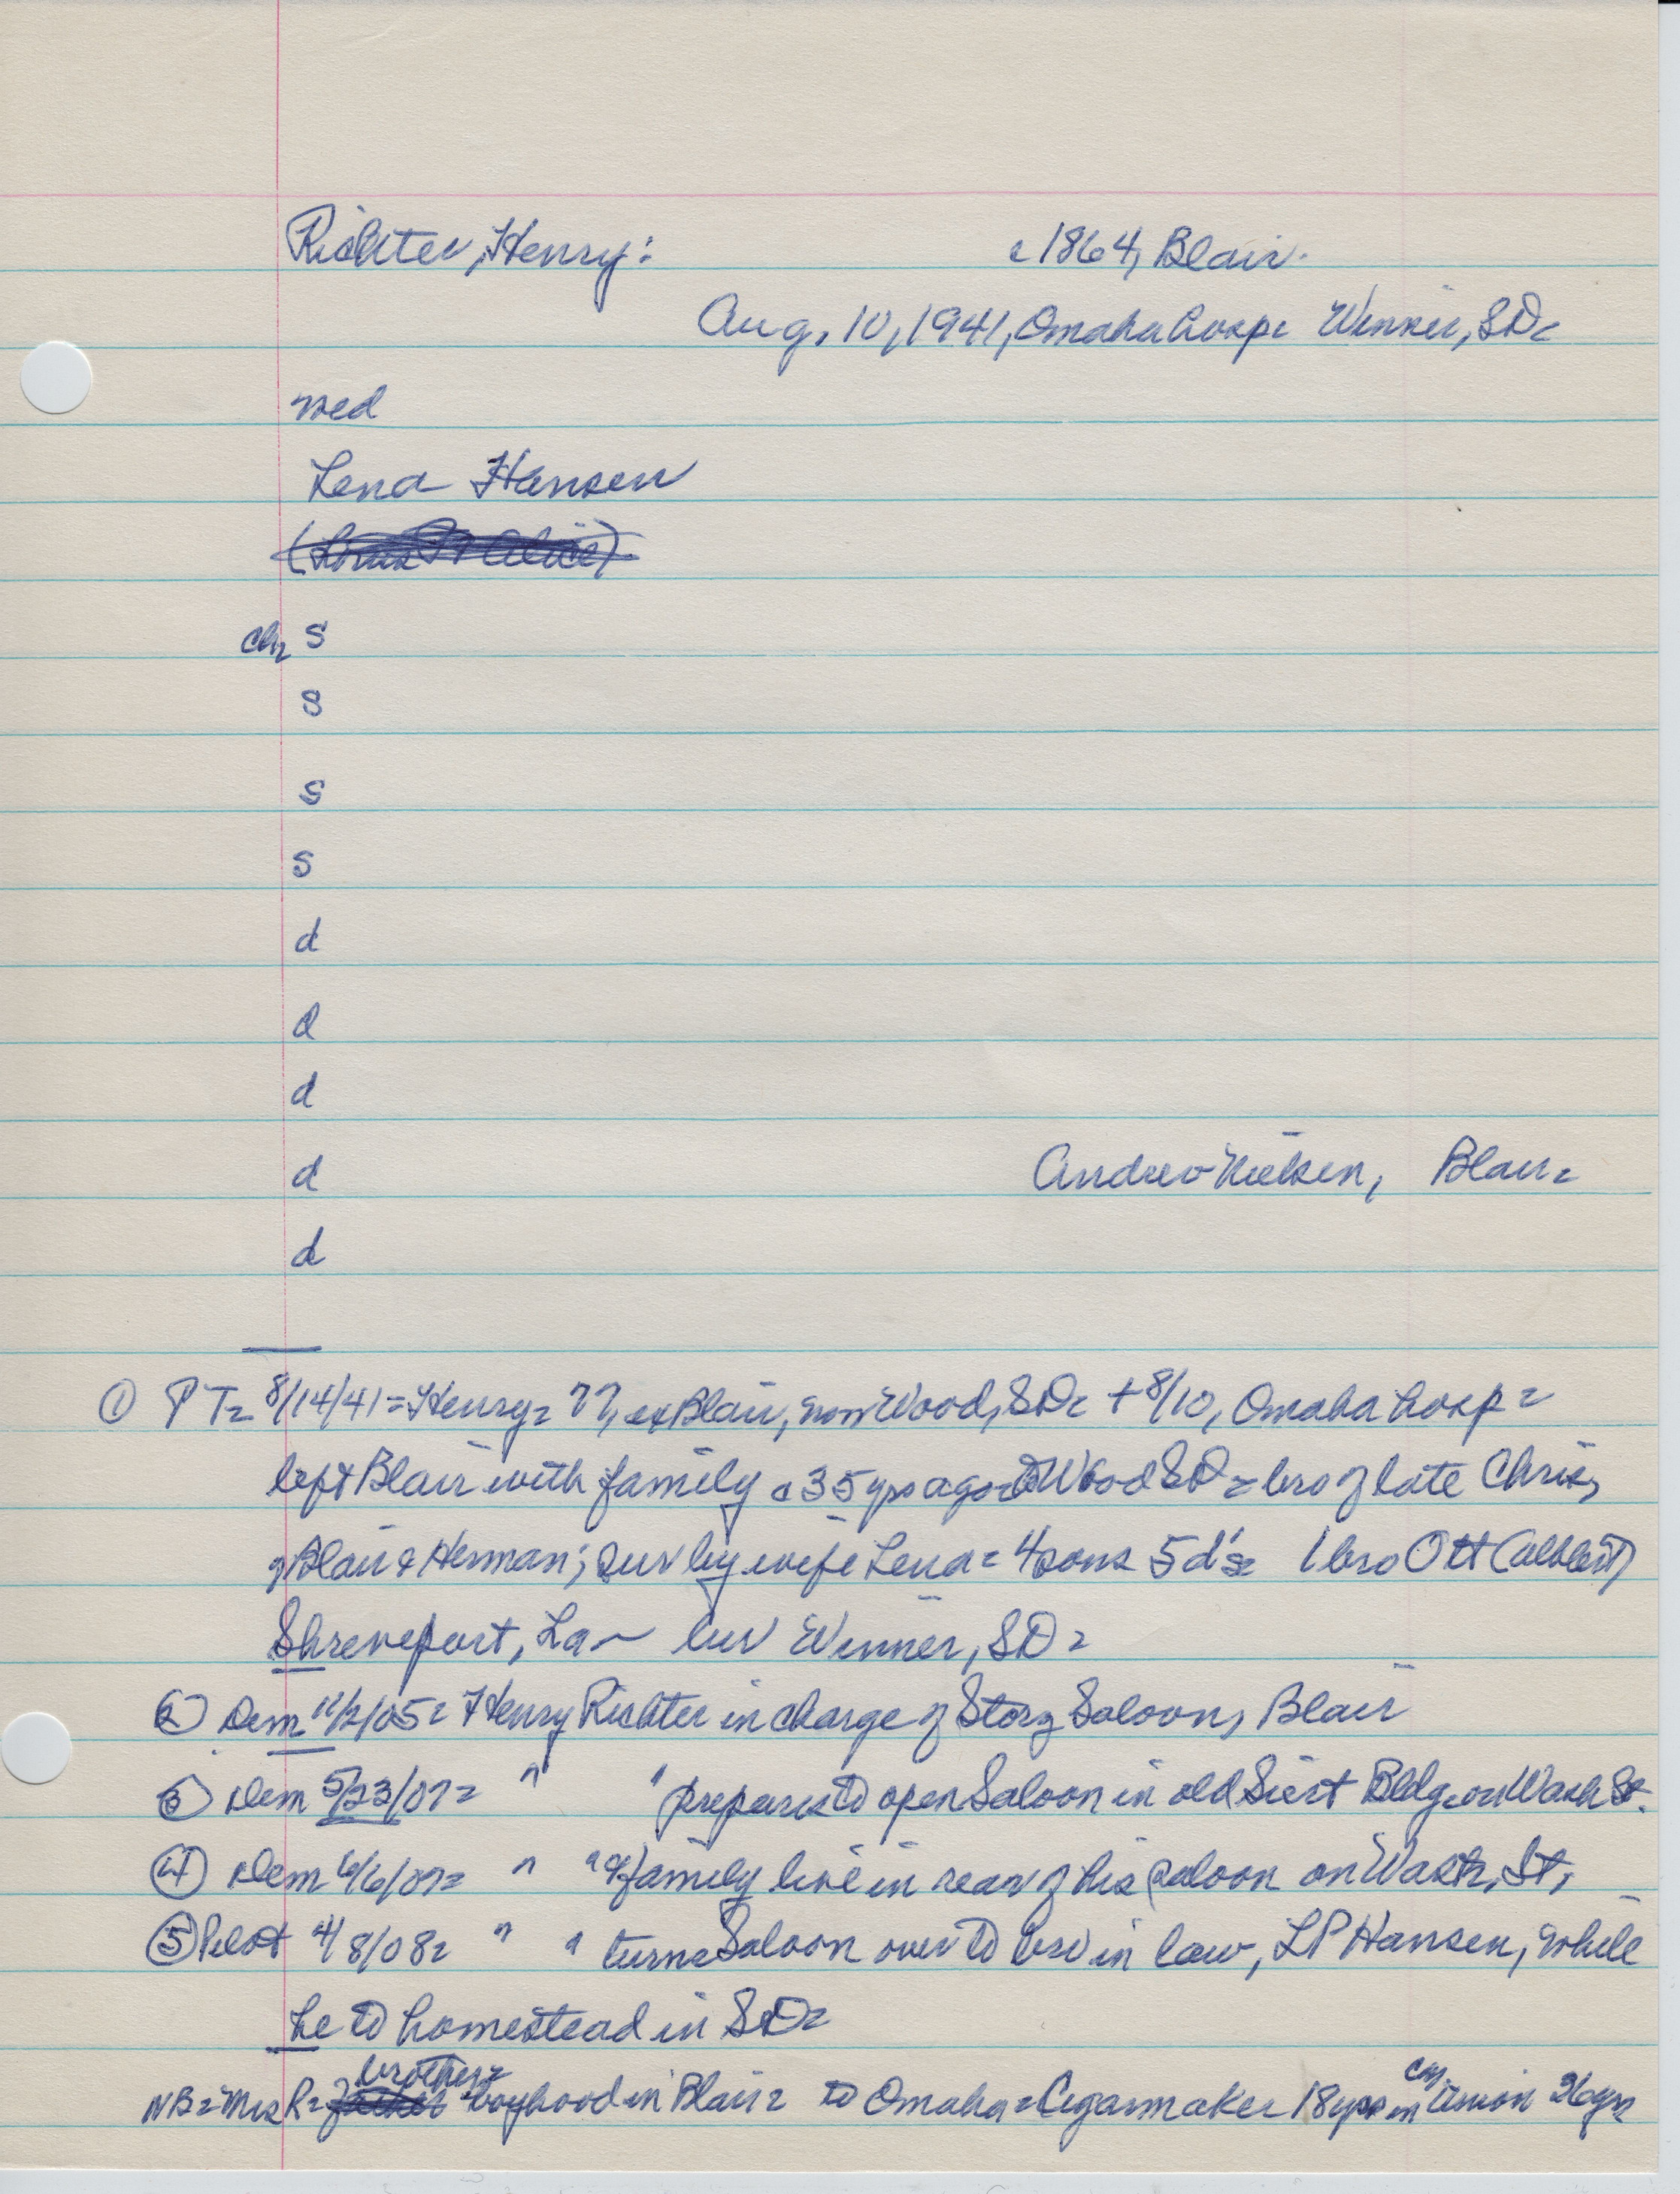 Richter, Henry: c 1864, Blair.
Aug. 10, 1941, Omaha hosp= Winner, SD=
med
Lena Hansen
ch= s
s
s
s
d
d
d
d Andrew Nielsen, Blair=
d
① PT= 8/14/41= Henry= 77, ex Blair, now Wood, SD= +8/10, Omaha hosp=
left Blair with family c 35 yrs ago to Wood SD= bro of late Chris,
of Blair & Herman; surv by wife Lena= 4 sons 5 d's= 1 bro Ott (Albert)
Shreveport, La~ bur Winner, SD=
② Dem 11/2/05= Henry Richter in charge of Storz Saloon, Blair
③ Dem 5/23/07= " " prepares to open Saloon in old Siert Bldg= on Wash St.
④ Dem 6/6/07= " " & family live in rear of his saloon on Wash, St,
⑤ Pilot 4/8/08= " " turns Saloon over to bro in law, LP Hansen, while
he to homestead in SD=
brother=
NB= Mrs R= boyhood in Blair= to Omaha= Cigarmaker 18 yrs in Union 26 yrs